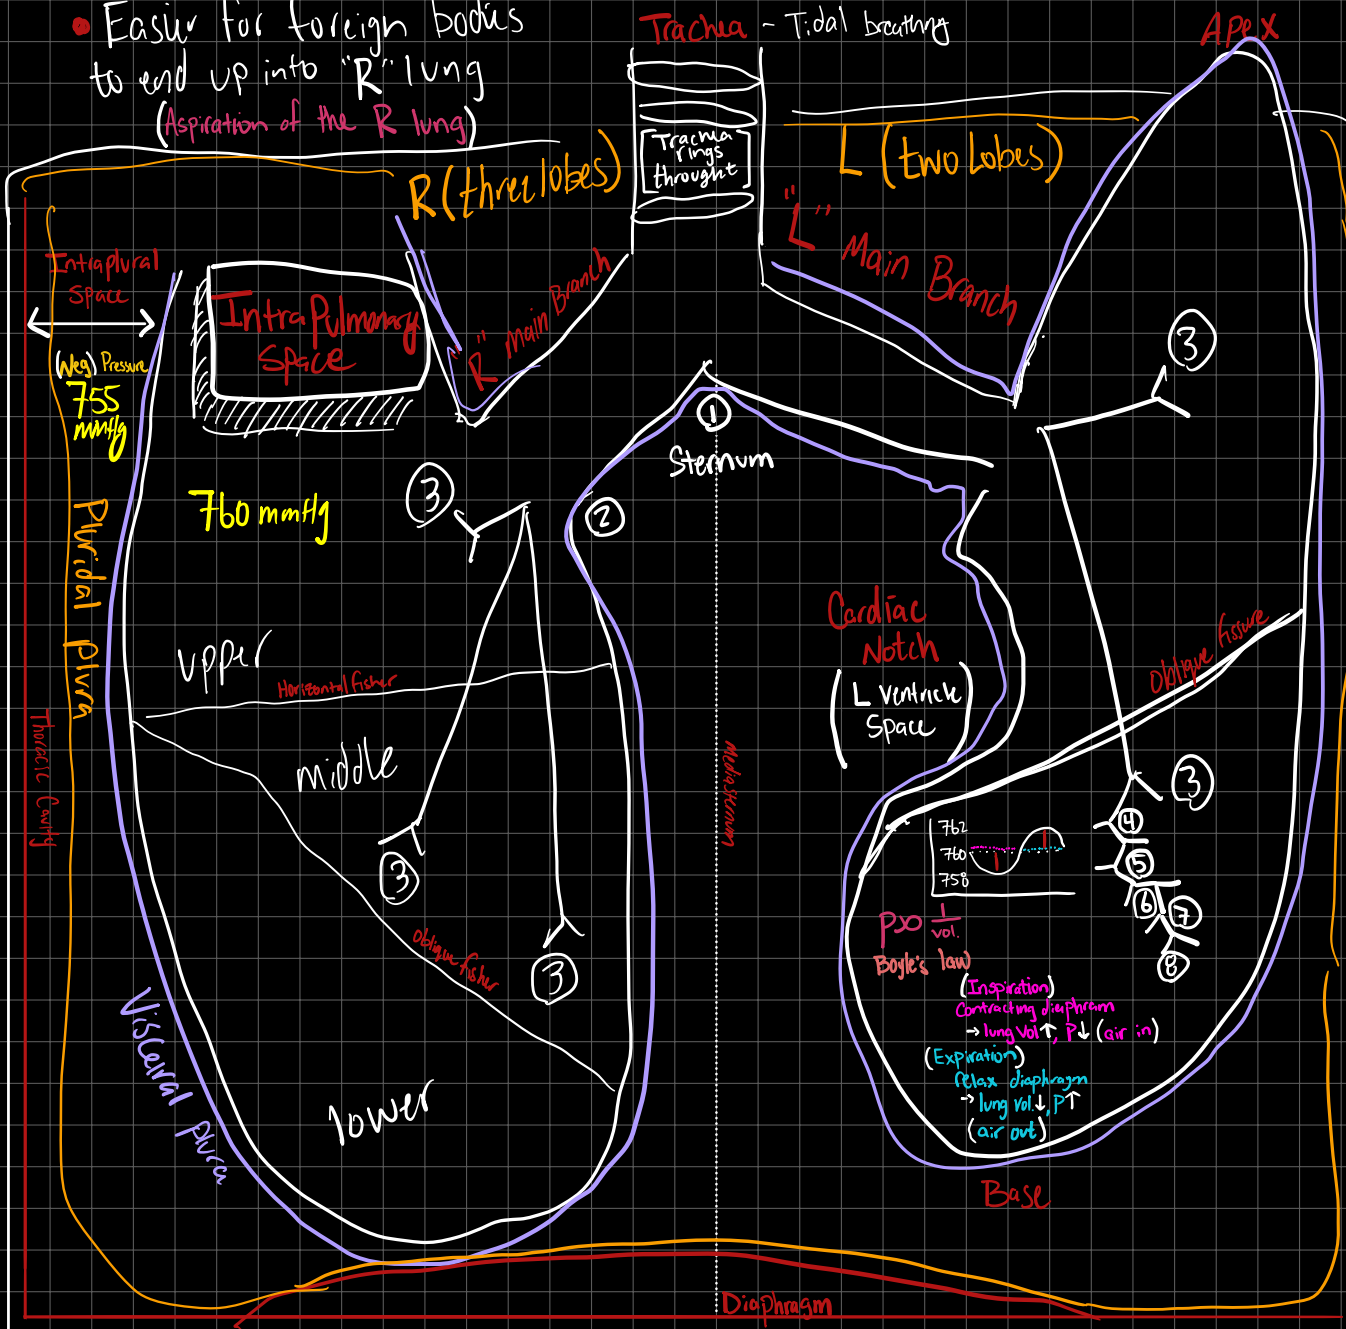 • Easier for foreign bodies
to end up into "R" lung
(Aspiration of the R lung)
Trachea - Tidal breathing
Apex
Trachea
rings
throught
R (three lobes)
L (two Lobes)
"L" Main Branch
"R" Main Branch
Intraplural
Space
(Neg) Pressure
755
mmHg
IntraPulmonary
Space
760 mmHg
3
3
1
Sternum
2
Pluridal plura
Thoracic Cavity
upper
Horizontal fisher
middle
3
Oblique fisher
3
lower
Visceiral plura
Mediasternum
Cardiac
Notch
(L ventricle
Space)
Oblique fissure
3
4
5
6
7
8
762
760
758
P∝ 1/vol.
Boyle's law
(Inspiration)
Contracting diaphram
→ lung vol ↑, P↓ (air in)
(Expiration)
relax diaphragm
→ lung vol.↓, P↑
(air out)
Base
Diaphragm